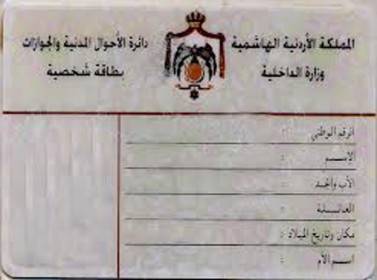 المملكة الأردنية الهاشمية
وزارة الداخلية
دائرة الأحوال المدنية والجوازات
بطاقة شخصية
الرقم الوطني :
الاســـم :
الأب والجد :
العائـلة :
مكان وتاريخ الميلاد :
اسم الأم :